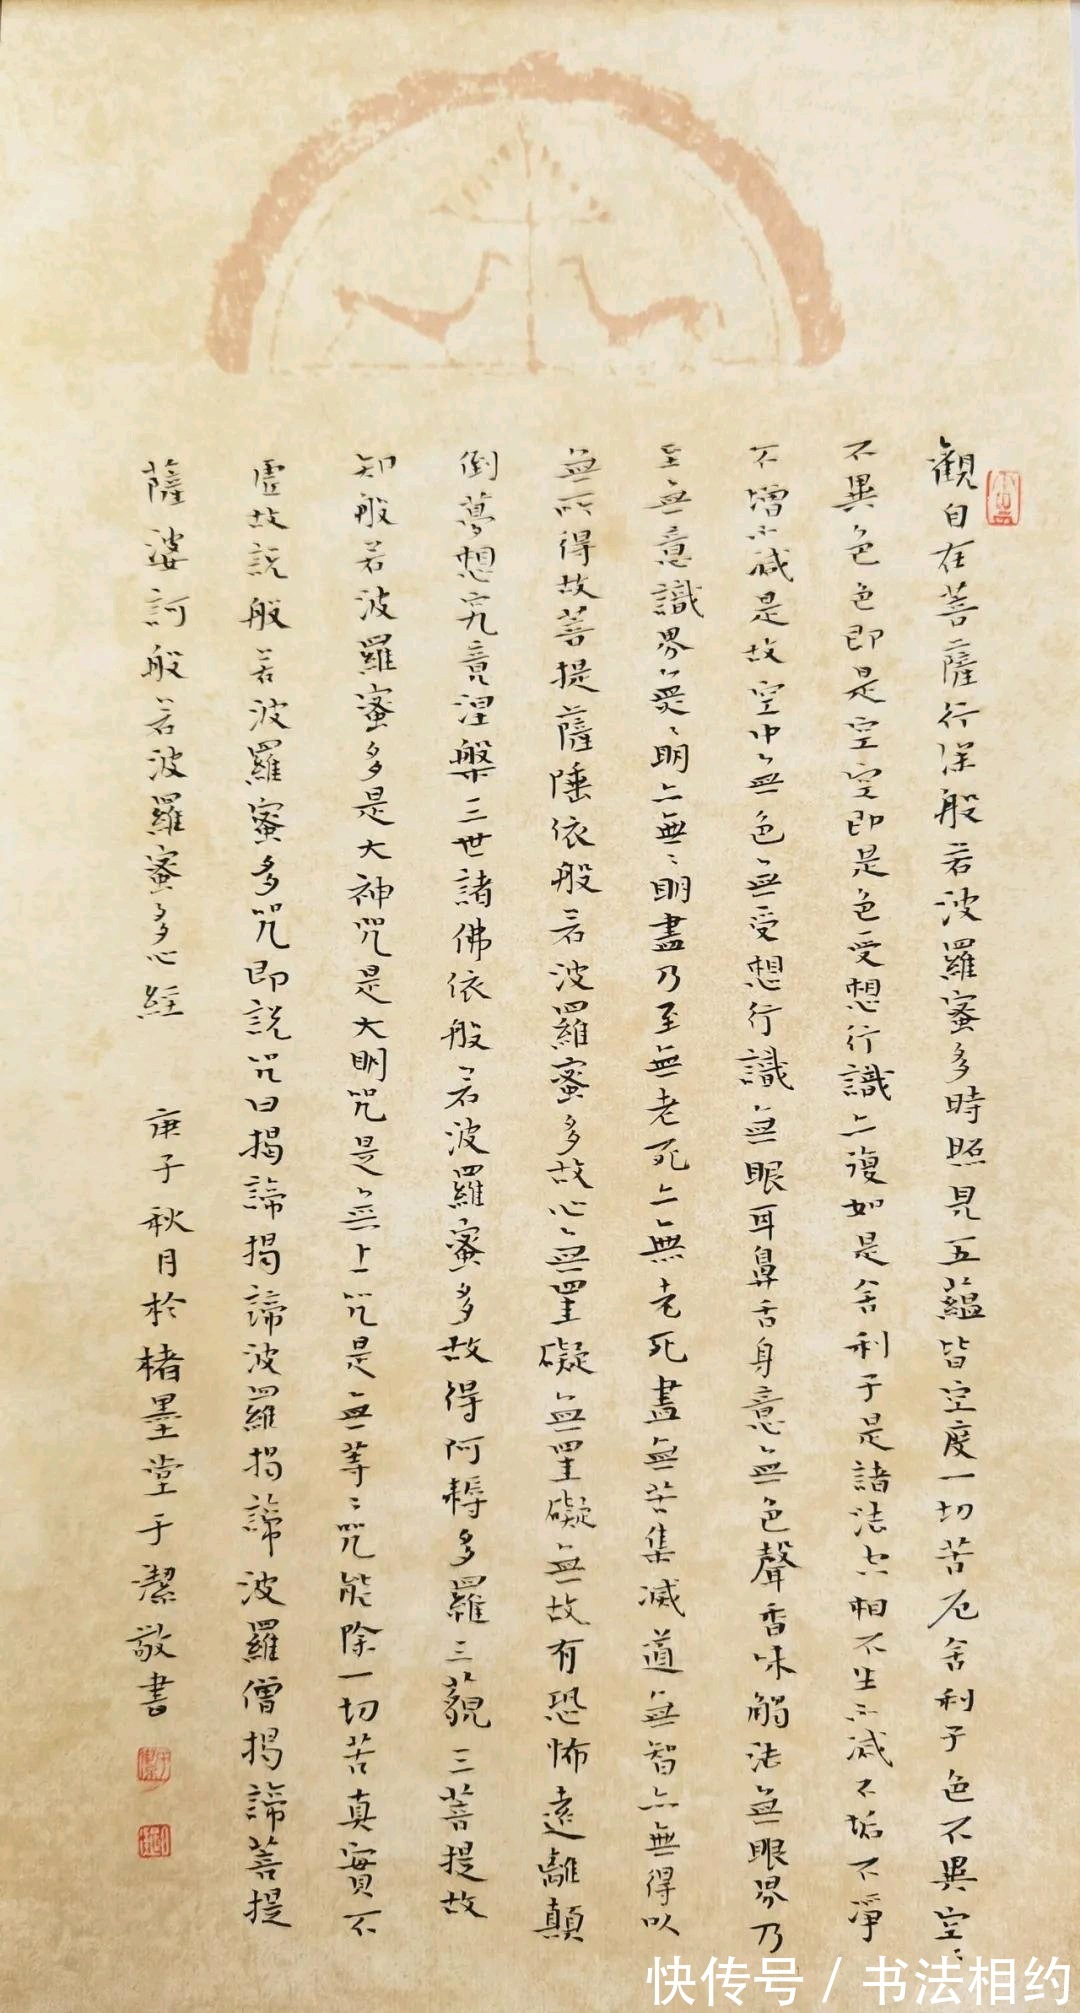 觀自在菩薩行深般若波羅蜜多時照見五蘊皆空度一切苦厄舍利子色不異空〻
不異色色即是空空即是色受想行識亦復如是舍利子是諸法空相不生不滅不垢不淨
不增不減是故空中無色無受想行識無眼耳鼻舌身意無色聲香味觸法無眼界乃
至無意識界無〻明亦無〻明盡乃至無老死亦無老死盡無苦集滅道無智亦無得以
無所得故菩提薩埵依般若波羅蜜多故心無罣礙無罣礙無故有恐怖遠離顛
倒夢想究竟涅槃三世諸佛依般若波羅蜜多故得阿耨多羅三藐三菩提故
知般若波羅蜜多是大神咒是大明咒是無上咒是無等〻咒能除一切苦真實不
虛故說般若波羅蜜多咒即說咒曰揭諦揭諦波羅揭諦波羅僧揭諦菩提
薩婆訶般若波羅蜜多心經 庚子秋月於楮墨堂于潔敬書
快传号 / 书法相约